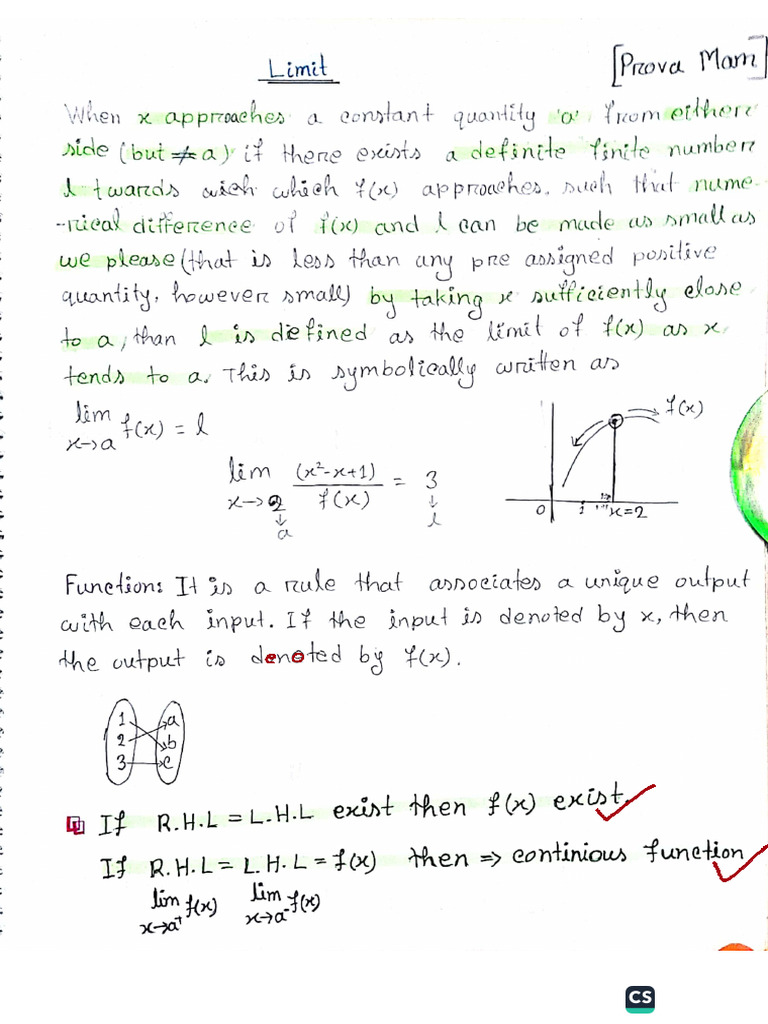 Limit
[Prova Mam]
When x approaches a constant quantity 'a' from either
side (but ≠ a) if there exists a definite finite number
l twards wich which f(x) approaches, such that nume-
-rical difference of f(x) and l can be made as small as
we please (that is less than any pre assigned positive
quantity, however small) by taking x sufficiently close
to a, than l is defined as the limit of f(x) as x
tends to a. This is symbolically written as
lim x→a f(x) = l
f(x)
lim x→2 (x²-x+1)/f(x) = 3
a
l
0 1 x=2
Function: It is a rule that associates a unique output
with each input. If the input is denoted by x, then
the output is denoted by f(x).
1 a
2 b
3 c
If R.H.L = L.H.L exist then f(x) exist
If R.H.L = L.H.L = f(x) then ⇒ continious function
lim x→a⁺ f(x) lim x→a⁻ f(x)
CS